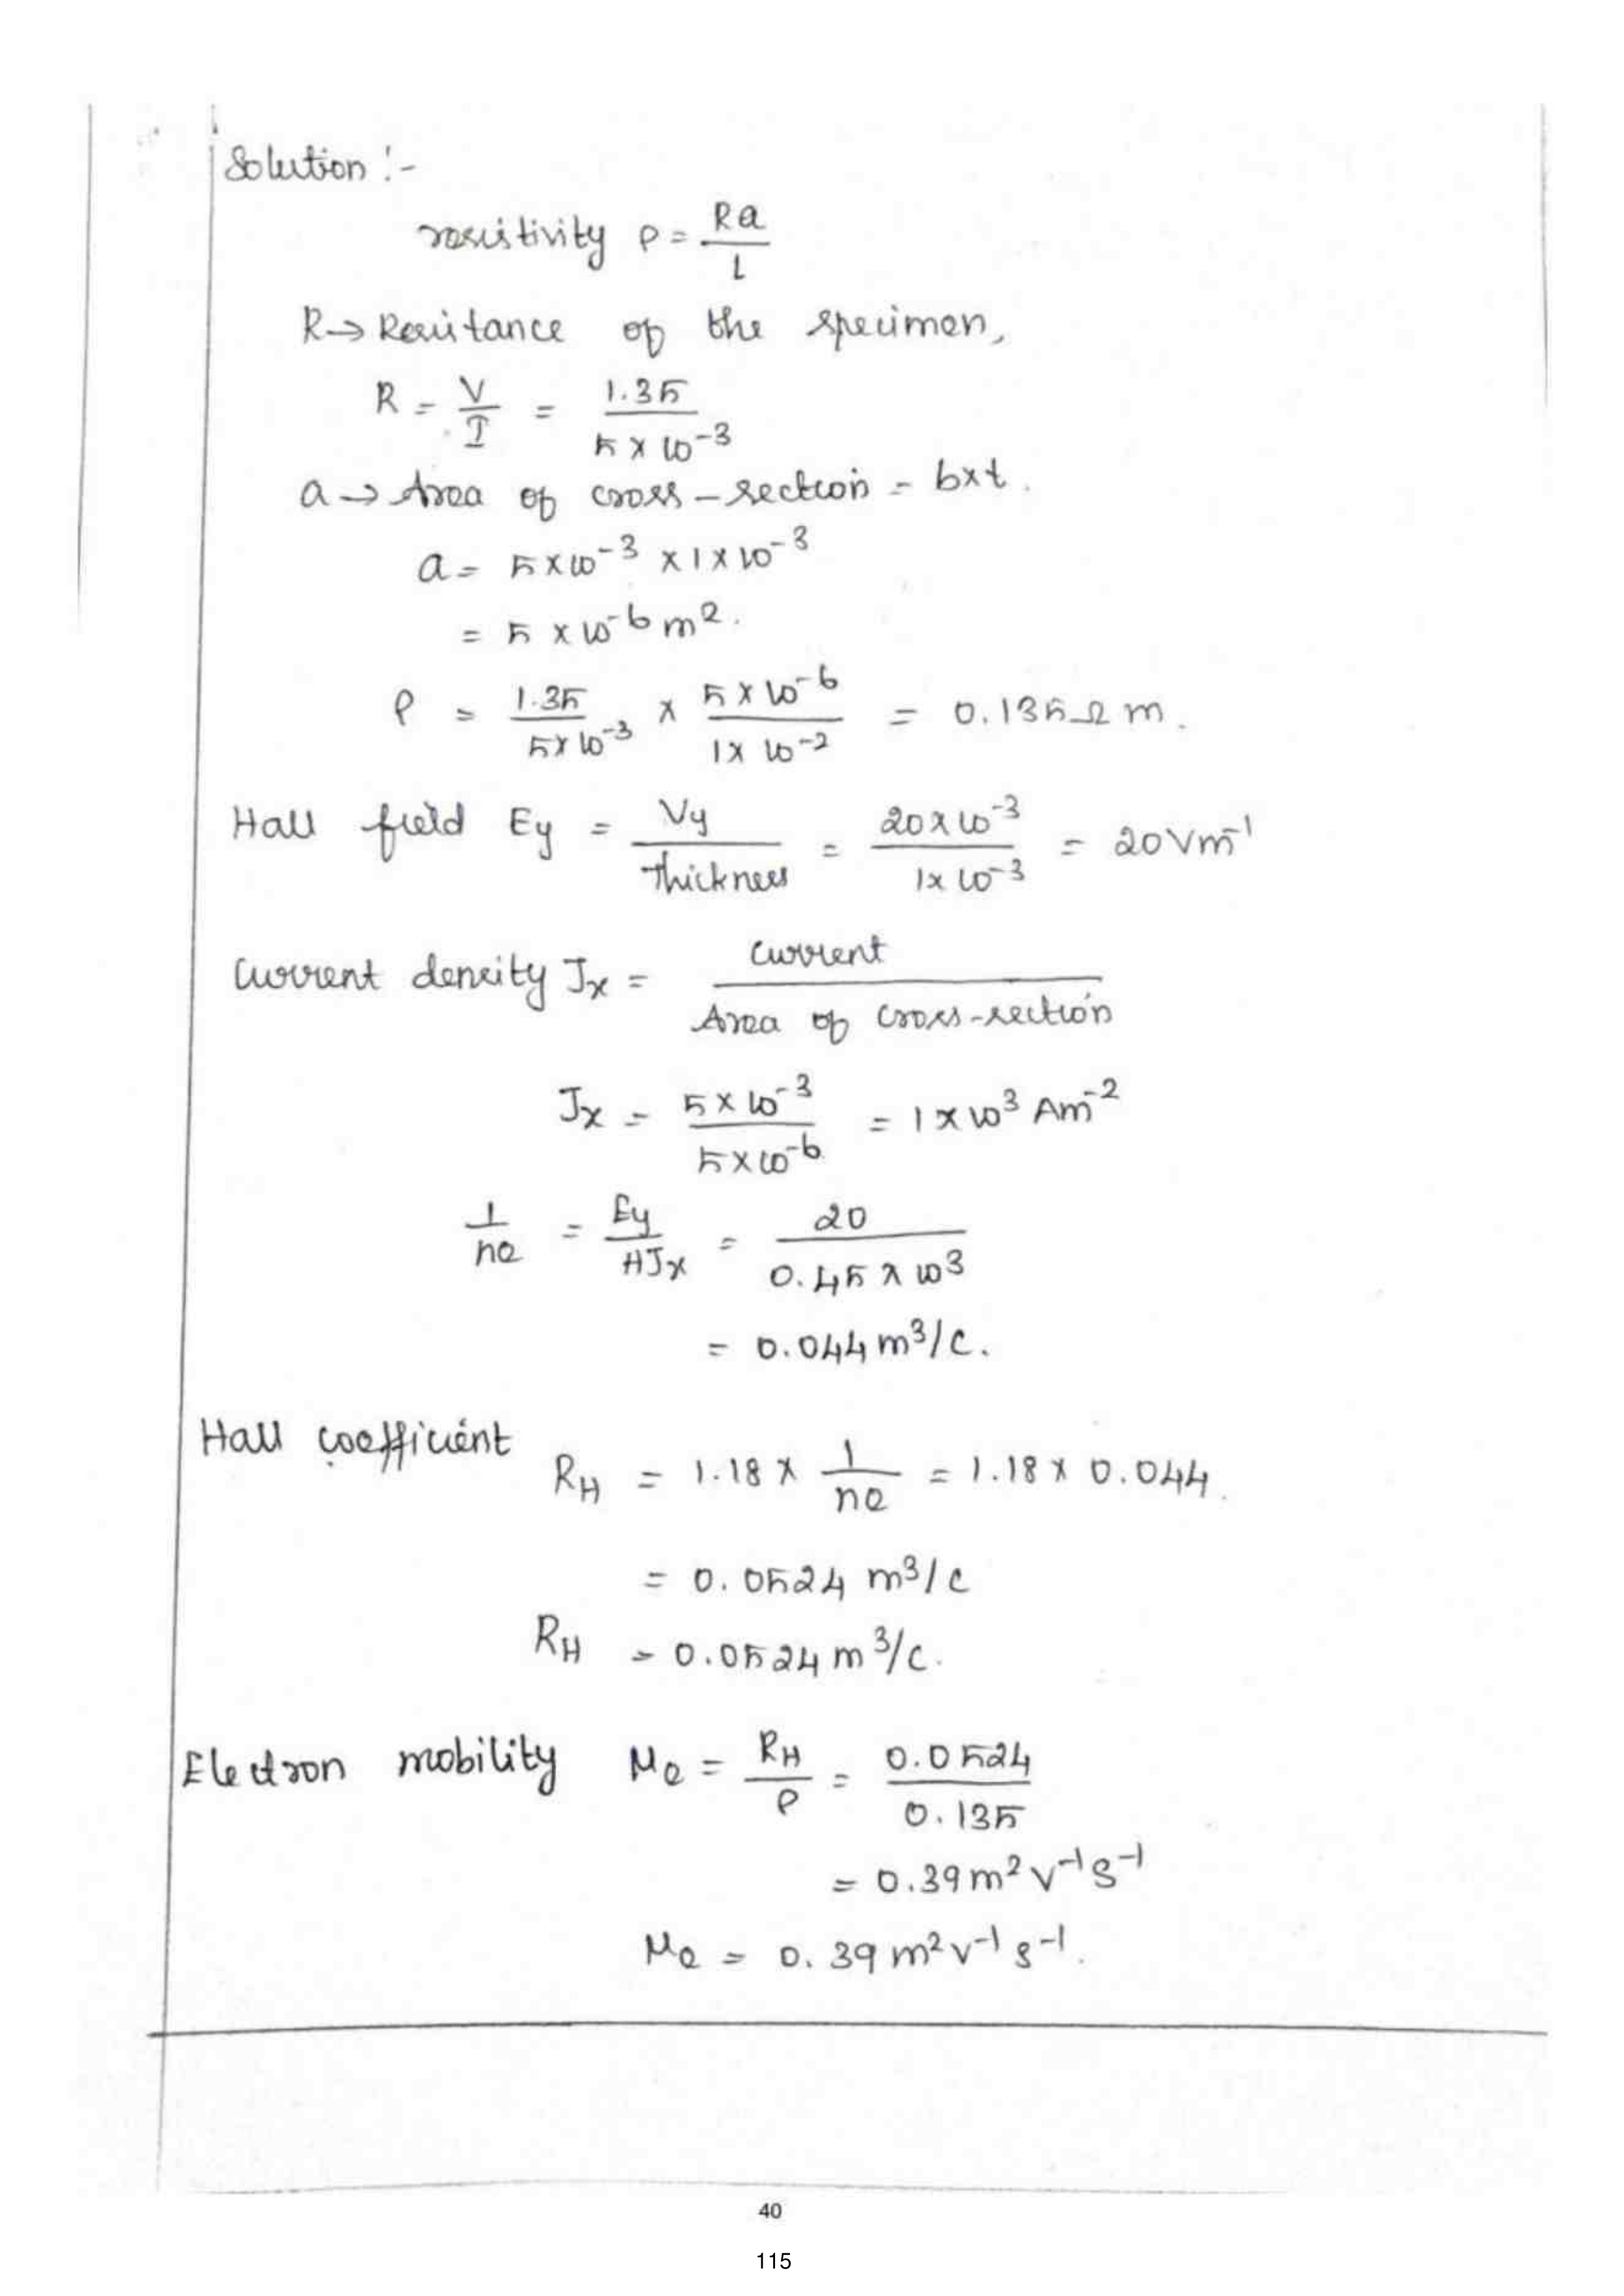 Solution :-
resistivity ρ = Ra / L
R → Resistance of the specimen,
R = V / I = 1.35 / 5 × 10⁻³
a → Area of cross-section = b×t.
a = 5×10⁻³ × 1 × 10⁻³
= 5 × 10⁻⁶ m².
ρ = 1.35 / 5×10⁻³ × 5 × 10⁻⁶ / 1× 10⁻² = 0.135 Ω m.
Hall field Ey = Vy / Thickness = 20 × 10⁻³ / 1× 10⁻³ = 20 Vm⁻¹
Current density Jx = Current / Area of cross-section
Jx = 5 × 10⁻³ / 5 × 10⁻⁶ = 1 × 10³ Am⁻²
1 / ne = Ey / HJx = 20 / 0.45 × 10³
= 0.044 m³/c.
Hall coefficient
RH = 1.18 × 1 / ne = 1.18 × 0.044.
= 0.0524 m³/c
RH = 0.0524 m³/c.
Electron mobility μe = RH / ρ = 0.0524 / 0.135
= 0.39 m² v⁻¹ s⁻¹
μe = 0.39 m² v⁻¹ s⁻¹.
40
115